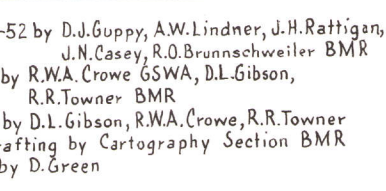 -52 by D.J.Guppy, A.W.Lindner, J.H.Rattigan,
J.N.Casey, R.O.Brunnschweiler BMR
by R.W.A.Crowe GSWA, D.L.Gibson,
R.R.Towner BMR
by D.L.Gibson, R.W.A.Crowe, R.R.Towner
afting by Cartography Section BMR
by D.Green